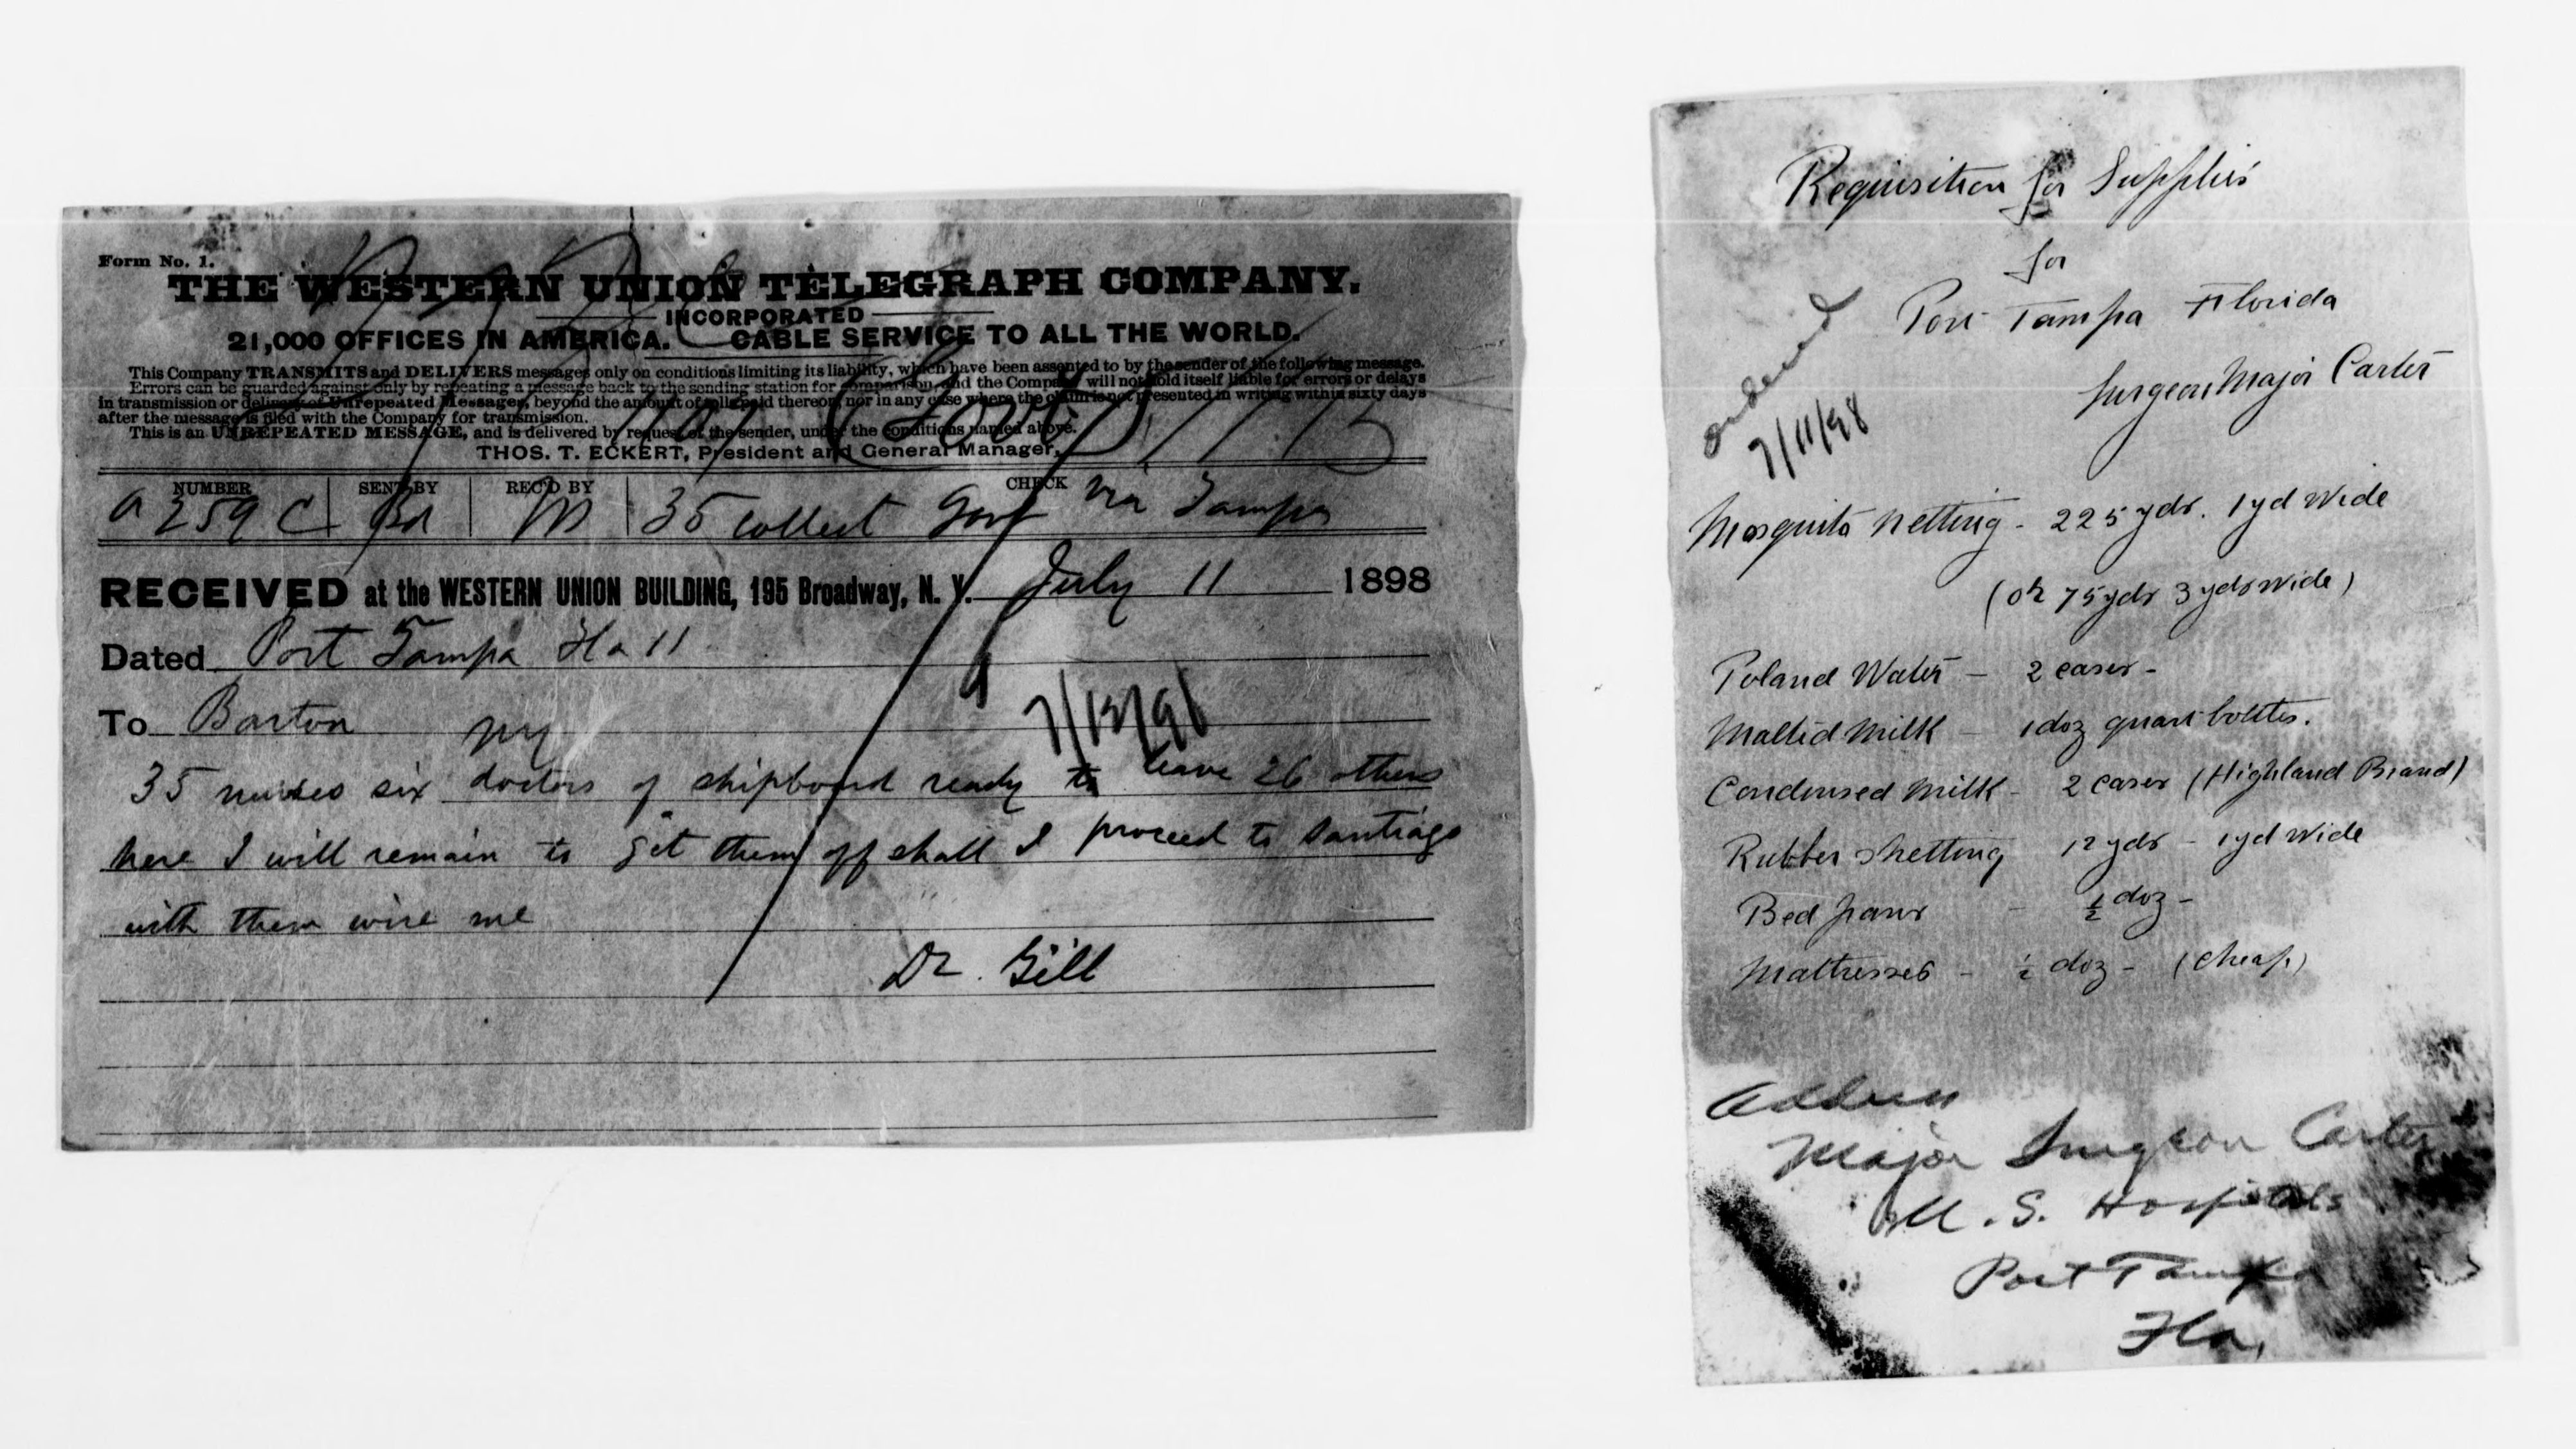 Form No. 1.
THE WESTERN UNION TELEGRAPH COMPANY.
INCORPORATED
21,000 OFFICES IN AMERICA. CABLE SERVICE TO ALL THE WORLD.
This Company TRANSMITS and DELIVERS messages only on conditions limiting its liability, which have been assented to by the sender of the following message.
Errors can be guarded against only by repeating a message back to the sending station for comparison, and the Company will not hold itself liable for errors or delays
in transmission or delivery of Unrepeated Messages, beyond the amount of tolls paid thereon, nor in any case where the claim is not presented in writing within sixty days
after the message is filed with the Company for transmission.
This is an UNREPEATED MESSAGE, and is delivered by request of the sender, under the conditions named above.
THOS. T. ECKERT, President and General Manager.
NUMBER SENT BY REC'D BY CHECK
a 259 C Bd M 35 collect Govt via Tampa
RECEIVED at the WESTERN UNION BUILDING, 195 Broadway, N. Y. July 11 1898
Dated Port Tampa Fla 11
To Barton
ny
7/12/98
35 nurses six doctors of shipboard ready to leave 26 others
here I will remain to get them off shall I proceed to Santiago
with them wire me
Dr. Gill
Requisition for Supplies
for
Port Tampa Florida
Surgeon Major Carter
ordered
7/11/98
Mosquito netting - 225 yds. 1 yd wide
(or 75 yds 3 yds wide)
Poland Water - 2 cases -
Malted Milk - 1 doz quart bottles.
Condensed Milk - 2 cases (Highland Brand)
Rubber Shetting 12 yds - 1 yd wide
Bed pans - ½ doz -
Mattresses - ½ doz - (cheap)
Address
Major Surgeon Carter
U.S. Hospitals
Port Tampa
Fla.